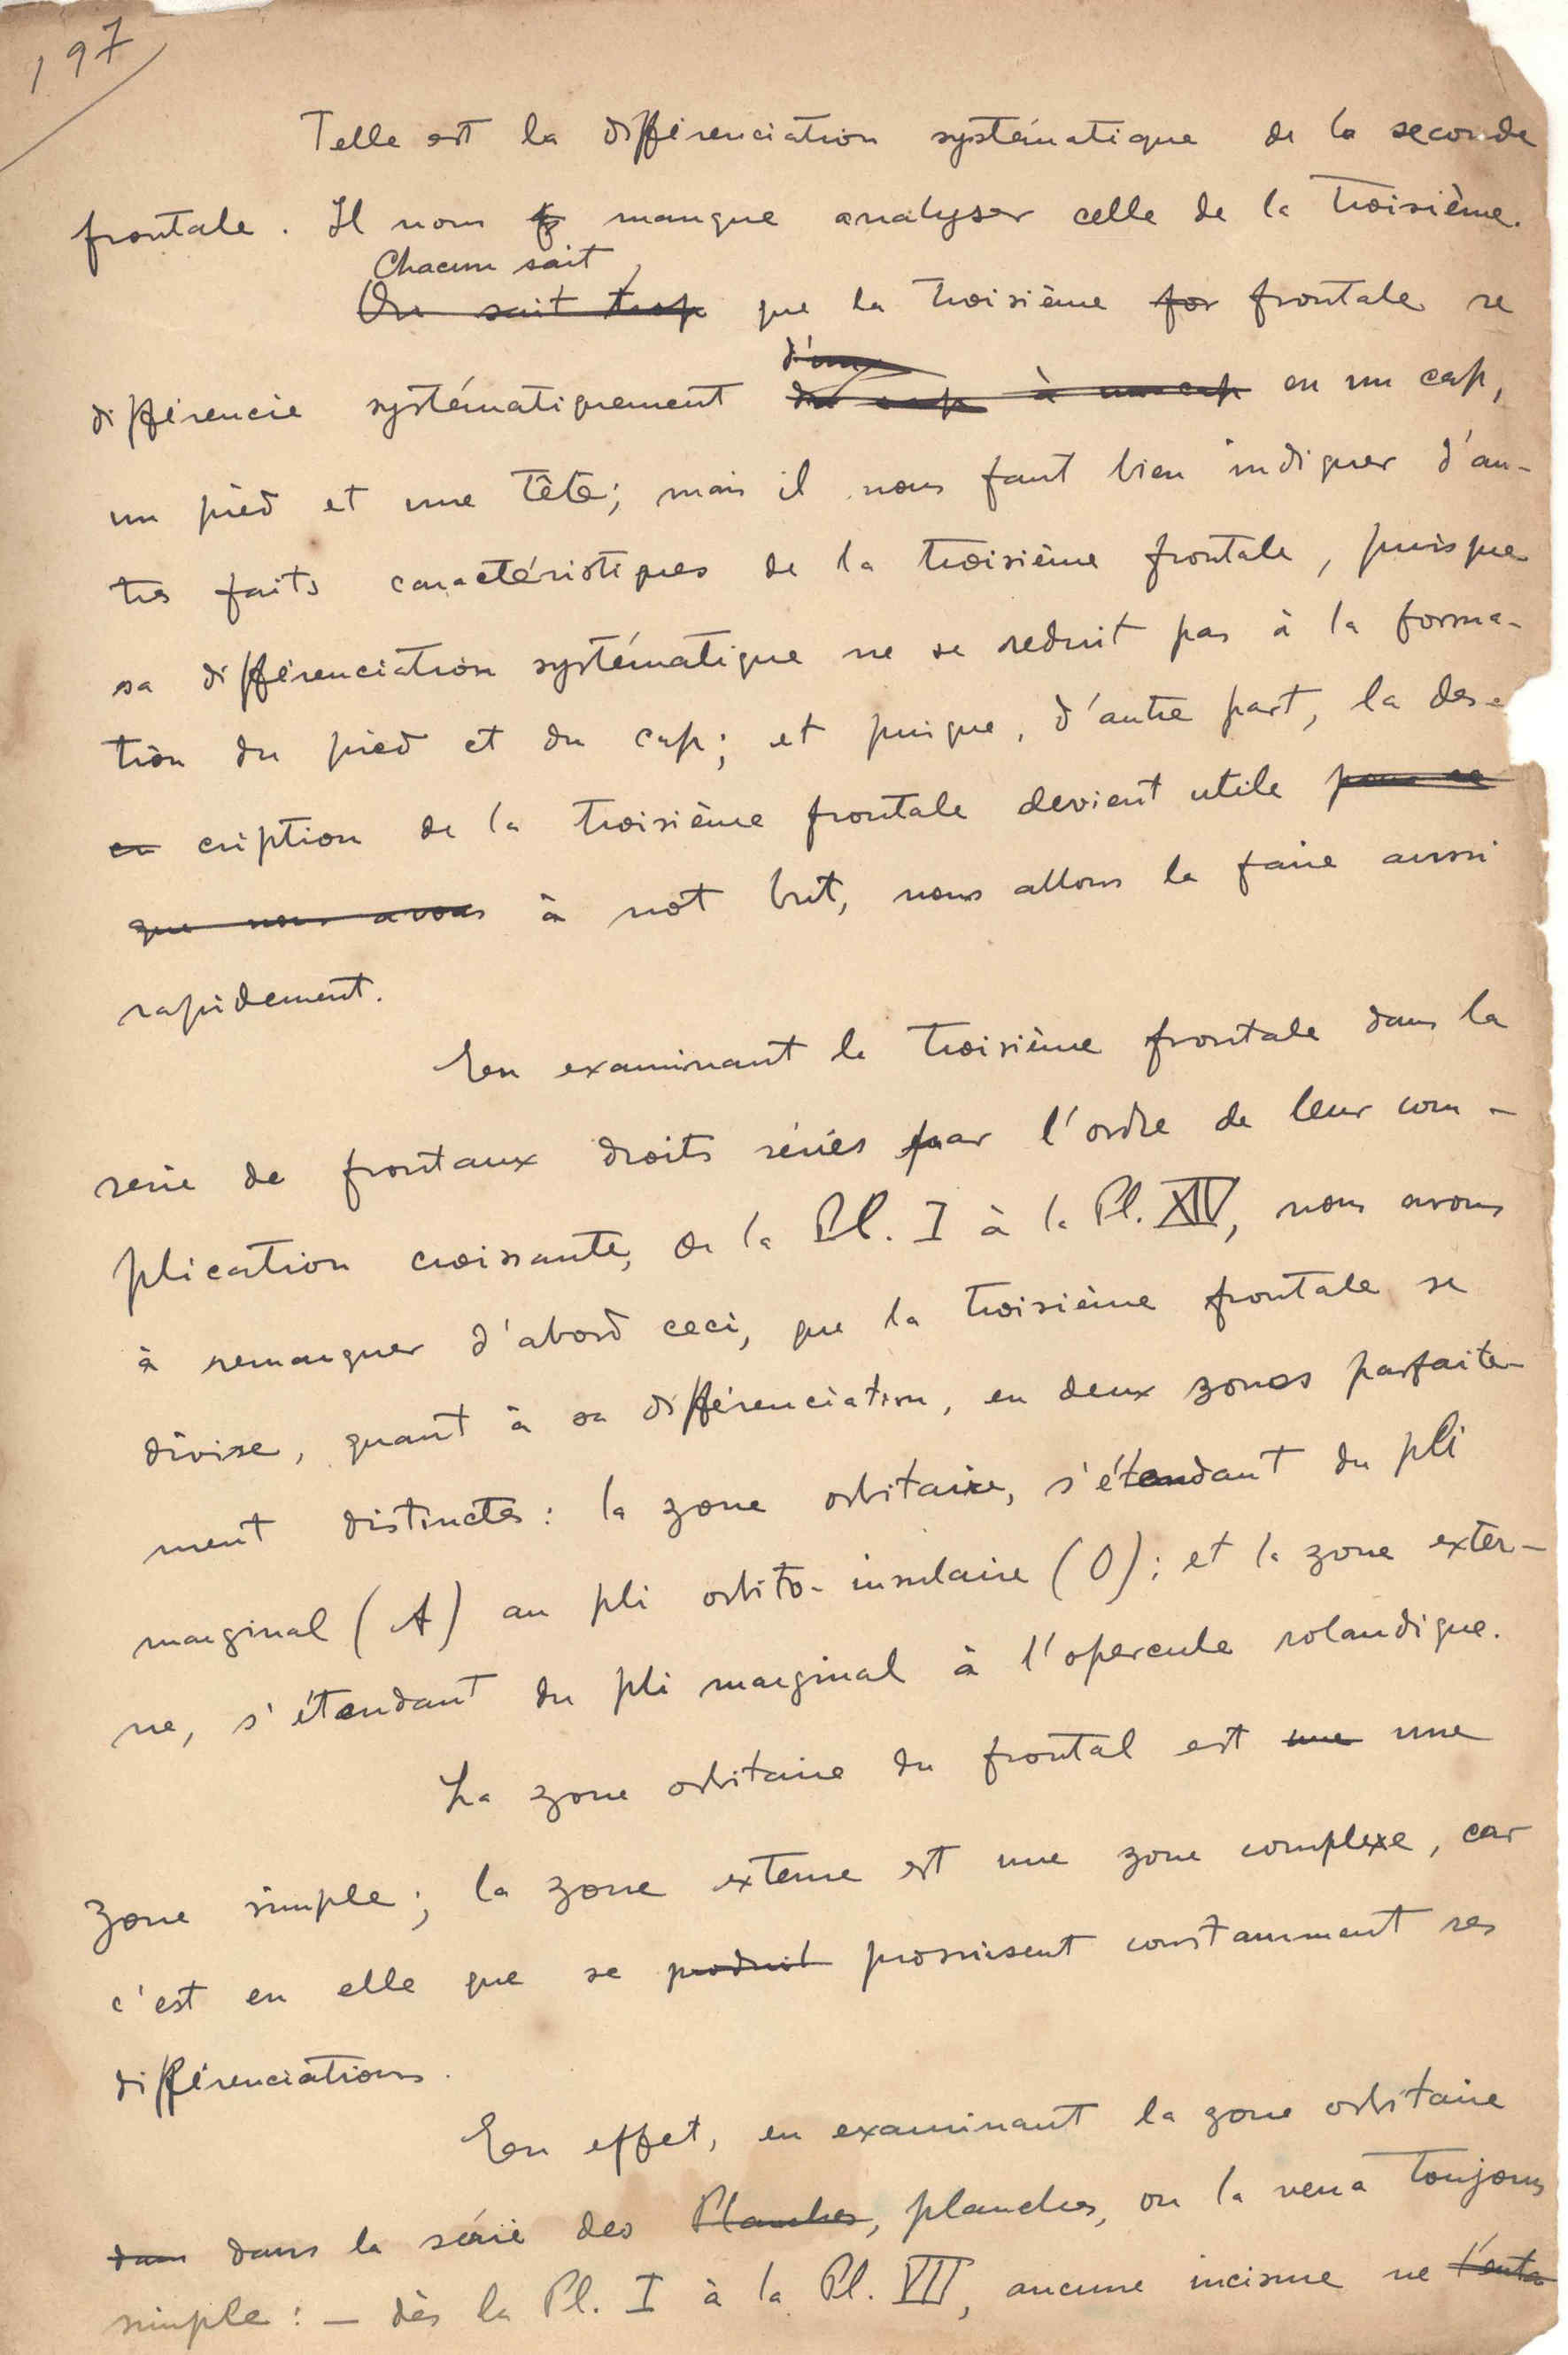 197
Telle est la différenciation systématique de la seconde
frontale. Il nous manque analyser celle de la troisième.
Chacun sait
On sait trop que la troisième for frontale se
d'une
différencie systématiquement du cap à un cap en un cap,
un pied et une tête; mais il nous faut bien indiquer d'au-
tres faits caractéristiques de la troisième frontale, puisque
sa différenciation systématique ne se reduit pas à la forma-
tion du pied et du cap; et puique, d'autre part, la des-
cription de la troisième frontale devient utile pour ce
que nous avons à not but, nous allons la faire aussi
rapidement.
En examinant la troisième frontale dans la
serie de frontaux droits sériés par l'ordre de leur com-
plication croissante, de la Pl. I à la Pl. XIV, nous avons
à remarquer d'abord ceci, que la troisième frontale se
divise, quant à sa différenciation, en deux zones parfaite-
ment distinctes: la zone orbitaire, s'étendant du pli
marginal (A) au pli orbito-insulaire (O); et la zone exter-
ne, s'étendant du pli marginal à l'opercule rolandique.
La zone orbitaire du frontal est une une
zone simple; la zone externe est une zone complexe, car
c'est en elle que se produit prosuisent constamment ses
différenciations.
En effet, en examinant la zone orbitaire
dans dans la série des Planches, planches, on la verra toujours
simple: — dès la Pl. I à la Pl. VII, aucune incisure ne l'enta